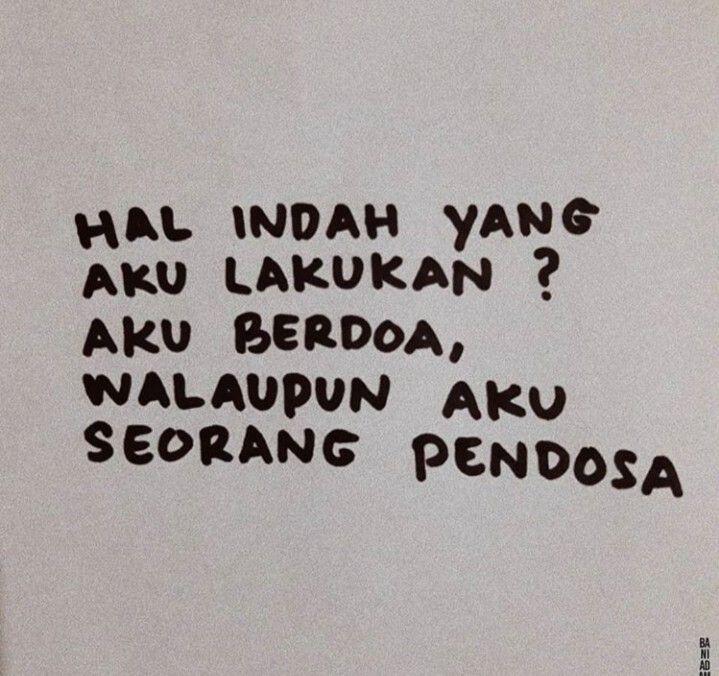 HAL INDAH YANG
AKU LAKUKAN ?
AKU BERDOA,
WALAUPUN AKU
SEORANG PENDOSA
BA
NI
AD
AM